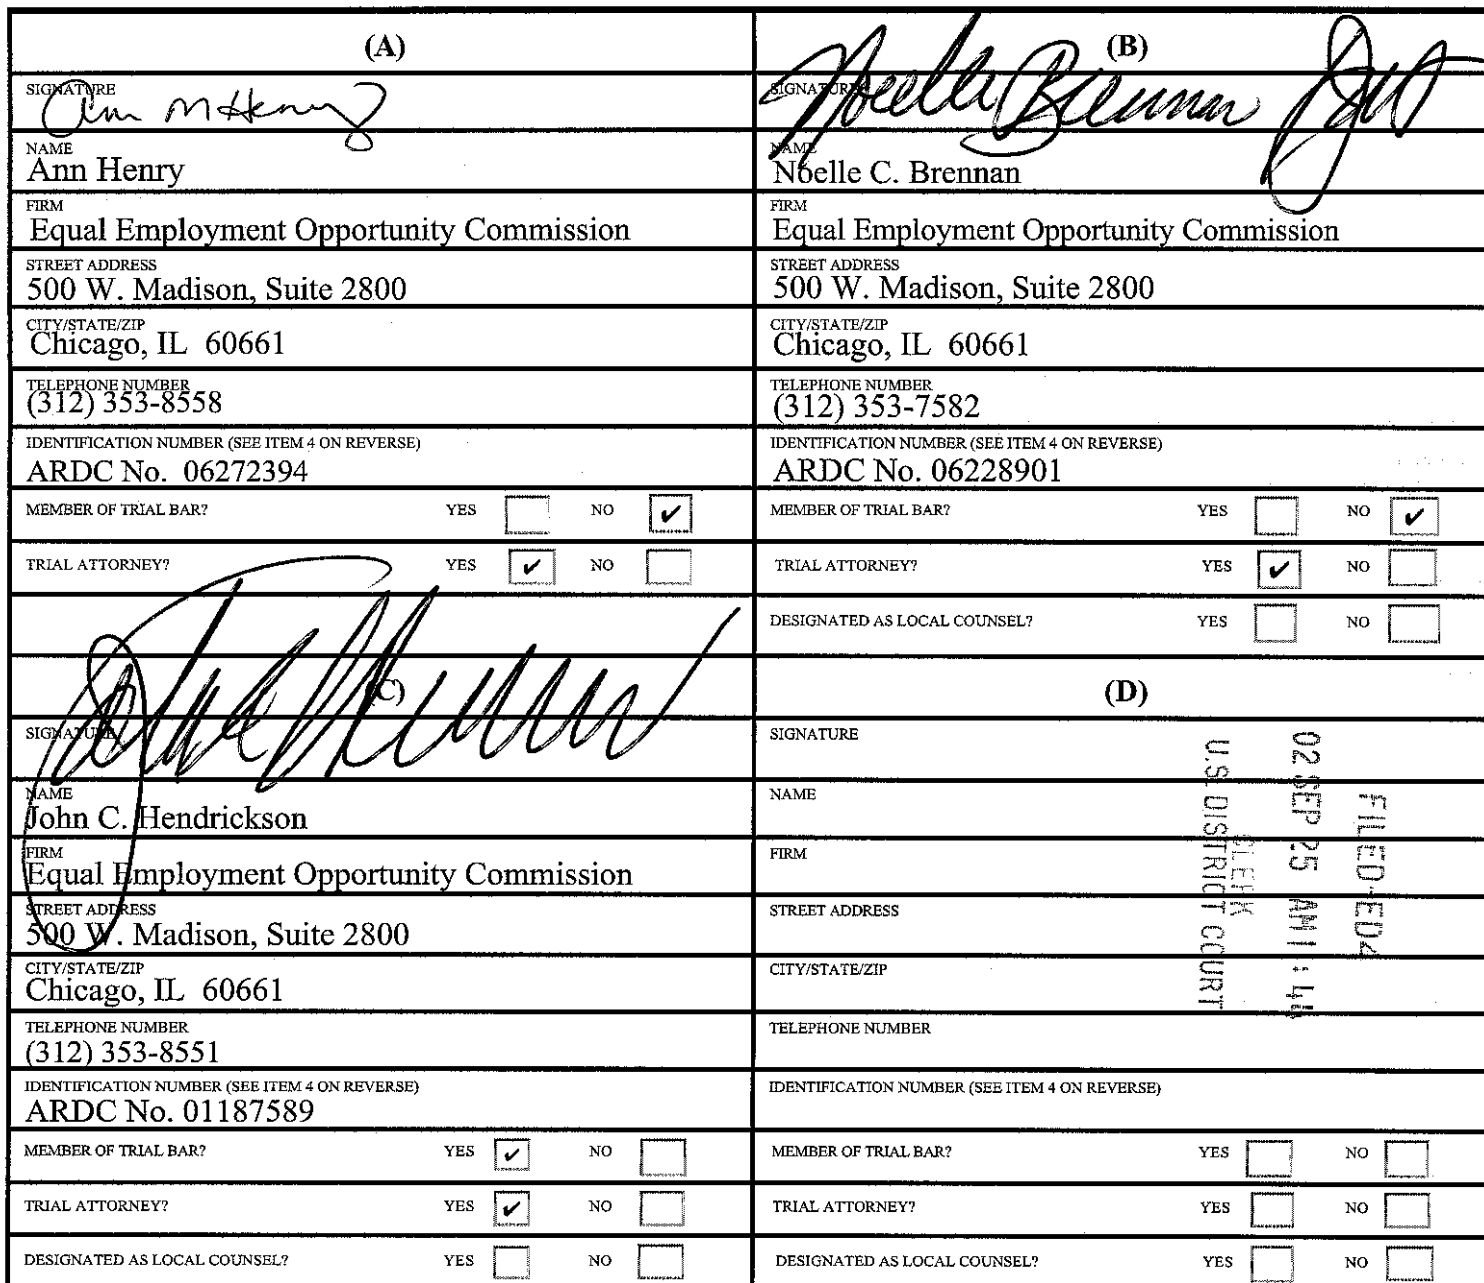 (A)
SIGNATURE
Ann M Henry
NAME
Ann Henry
FIRM
Equal Employment Opportunity Commission
STREET ADDRESS
500 W. Madison, Suite 2800
CITY/STATE/ZIP
Chicago, IL 60661
TELEPHONE NUMBER
(312) 353-8558
IDENTIFICATION NUMBER (SEE ITEM 4 ON REVERSE)
ARDC No. 06272394
MEMBER OF TRIAL BAR? YES NO ✔
TRIAL ATTORNEY? YES ✔ NO
(B)
SIGNATURE
Noelle Brennan
NAME
Noelle C. Brennan
FIRM
Equal Employment Opportunity Commission
STREET ADDRESS
500 W. Madison, Suite 2800
CITY/STATE/ZIP
Chicago, IL 60661
TELEPHONE NUMBER
(312) 353-7582
IDENTIFICATION NUMBER (SEE ITEM 4 ON REVERSE)
ARDC No. 06228901
MEMBER OF TRIAL BAR? YES NO ✔
TRIAL ATTORNEY? YES ✔ NO
DESIGNATED AS LOCAL COUNSEL? YES NO
(C)
SIGNATURE
NAME
John C. Hendrickson
FIRM
Equal Employment Opportunity Commission
STREET ADDRESS
500 W. Madison, Suite 2800
CITY/STATE/ZIP
Chicago, IL 60661
TELEPHONE NUMBER
(312) 353-8551
IDENTIFICATION NUMBER (SEE ITEM 4 ON REVERSE)
ARDC No. 01187589
MEMBER OF TRIAL BAR? YES ✔ NO
TRIAL ATTORNEY? YES ✔ NO
DESIGNATED AS LOCAL COUNSEL? YES NO
(D)
SIGNATURE
NAME
FIRM
STREET ADDRESS
CITY/STATE/ZIP
TELEPHONE NUMBER
IDENTIFICATION NUMBER (SEE ITEM 4 ON REVERSE)
MEMBER OF TRIAL BAR? YES NO
TRIAL ATTORNEY? YES NO
DESIGNATED AS LOCAL COUNSEL? YES NO
FILED-ED4
02 SEP 25 AM
CLERK
U.S. DISTRICT COURT